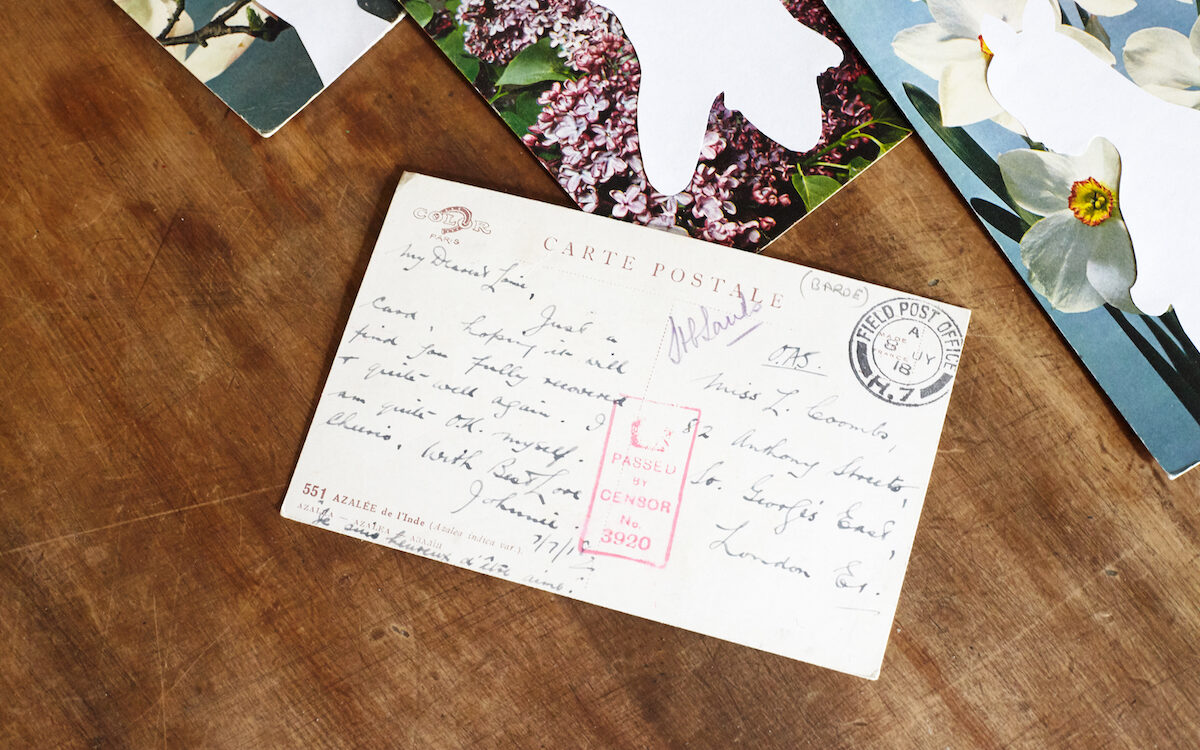 COLOR
PARIS
CARTE POSTALE
(BARDE)
My Dearest
Just a
Card, hoping it will
find you fully recovered
& quite well again. I
am quite O.K. myself.
Cheerio. With Best Love
Johnnie.
7/7/18
551 AZALÉE de l'Inde (Azalea indica var.).
AZALEA - AZALEA
Je suis heureux d'être aimé!
PASSED
BY
CENSOR
No.
3920
O.A.S.
Miss L. Coombs,
82 Anthony Streets,
So. George's East,
London E1.
FIELD POST OFFICE
A
8 JY
18
H.7
MADE
FRANCE